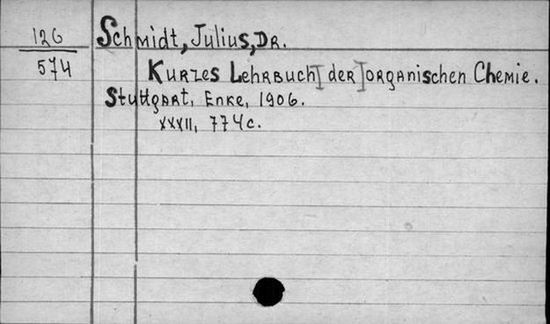 126
574
Schmidt, Julius, Dr.
Kurzes Lehrbuch [der] organischen Chemie.
Stuttgart, Enke, 1906.
XXXII, 774c.